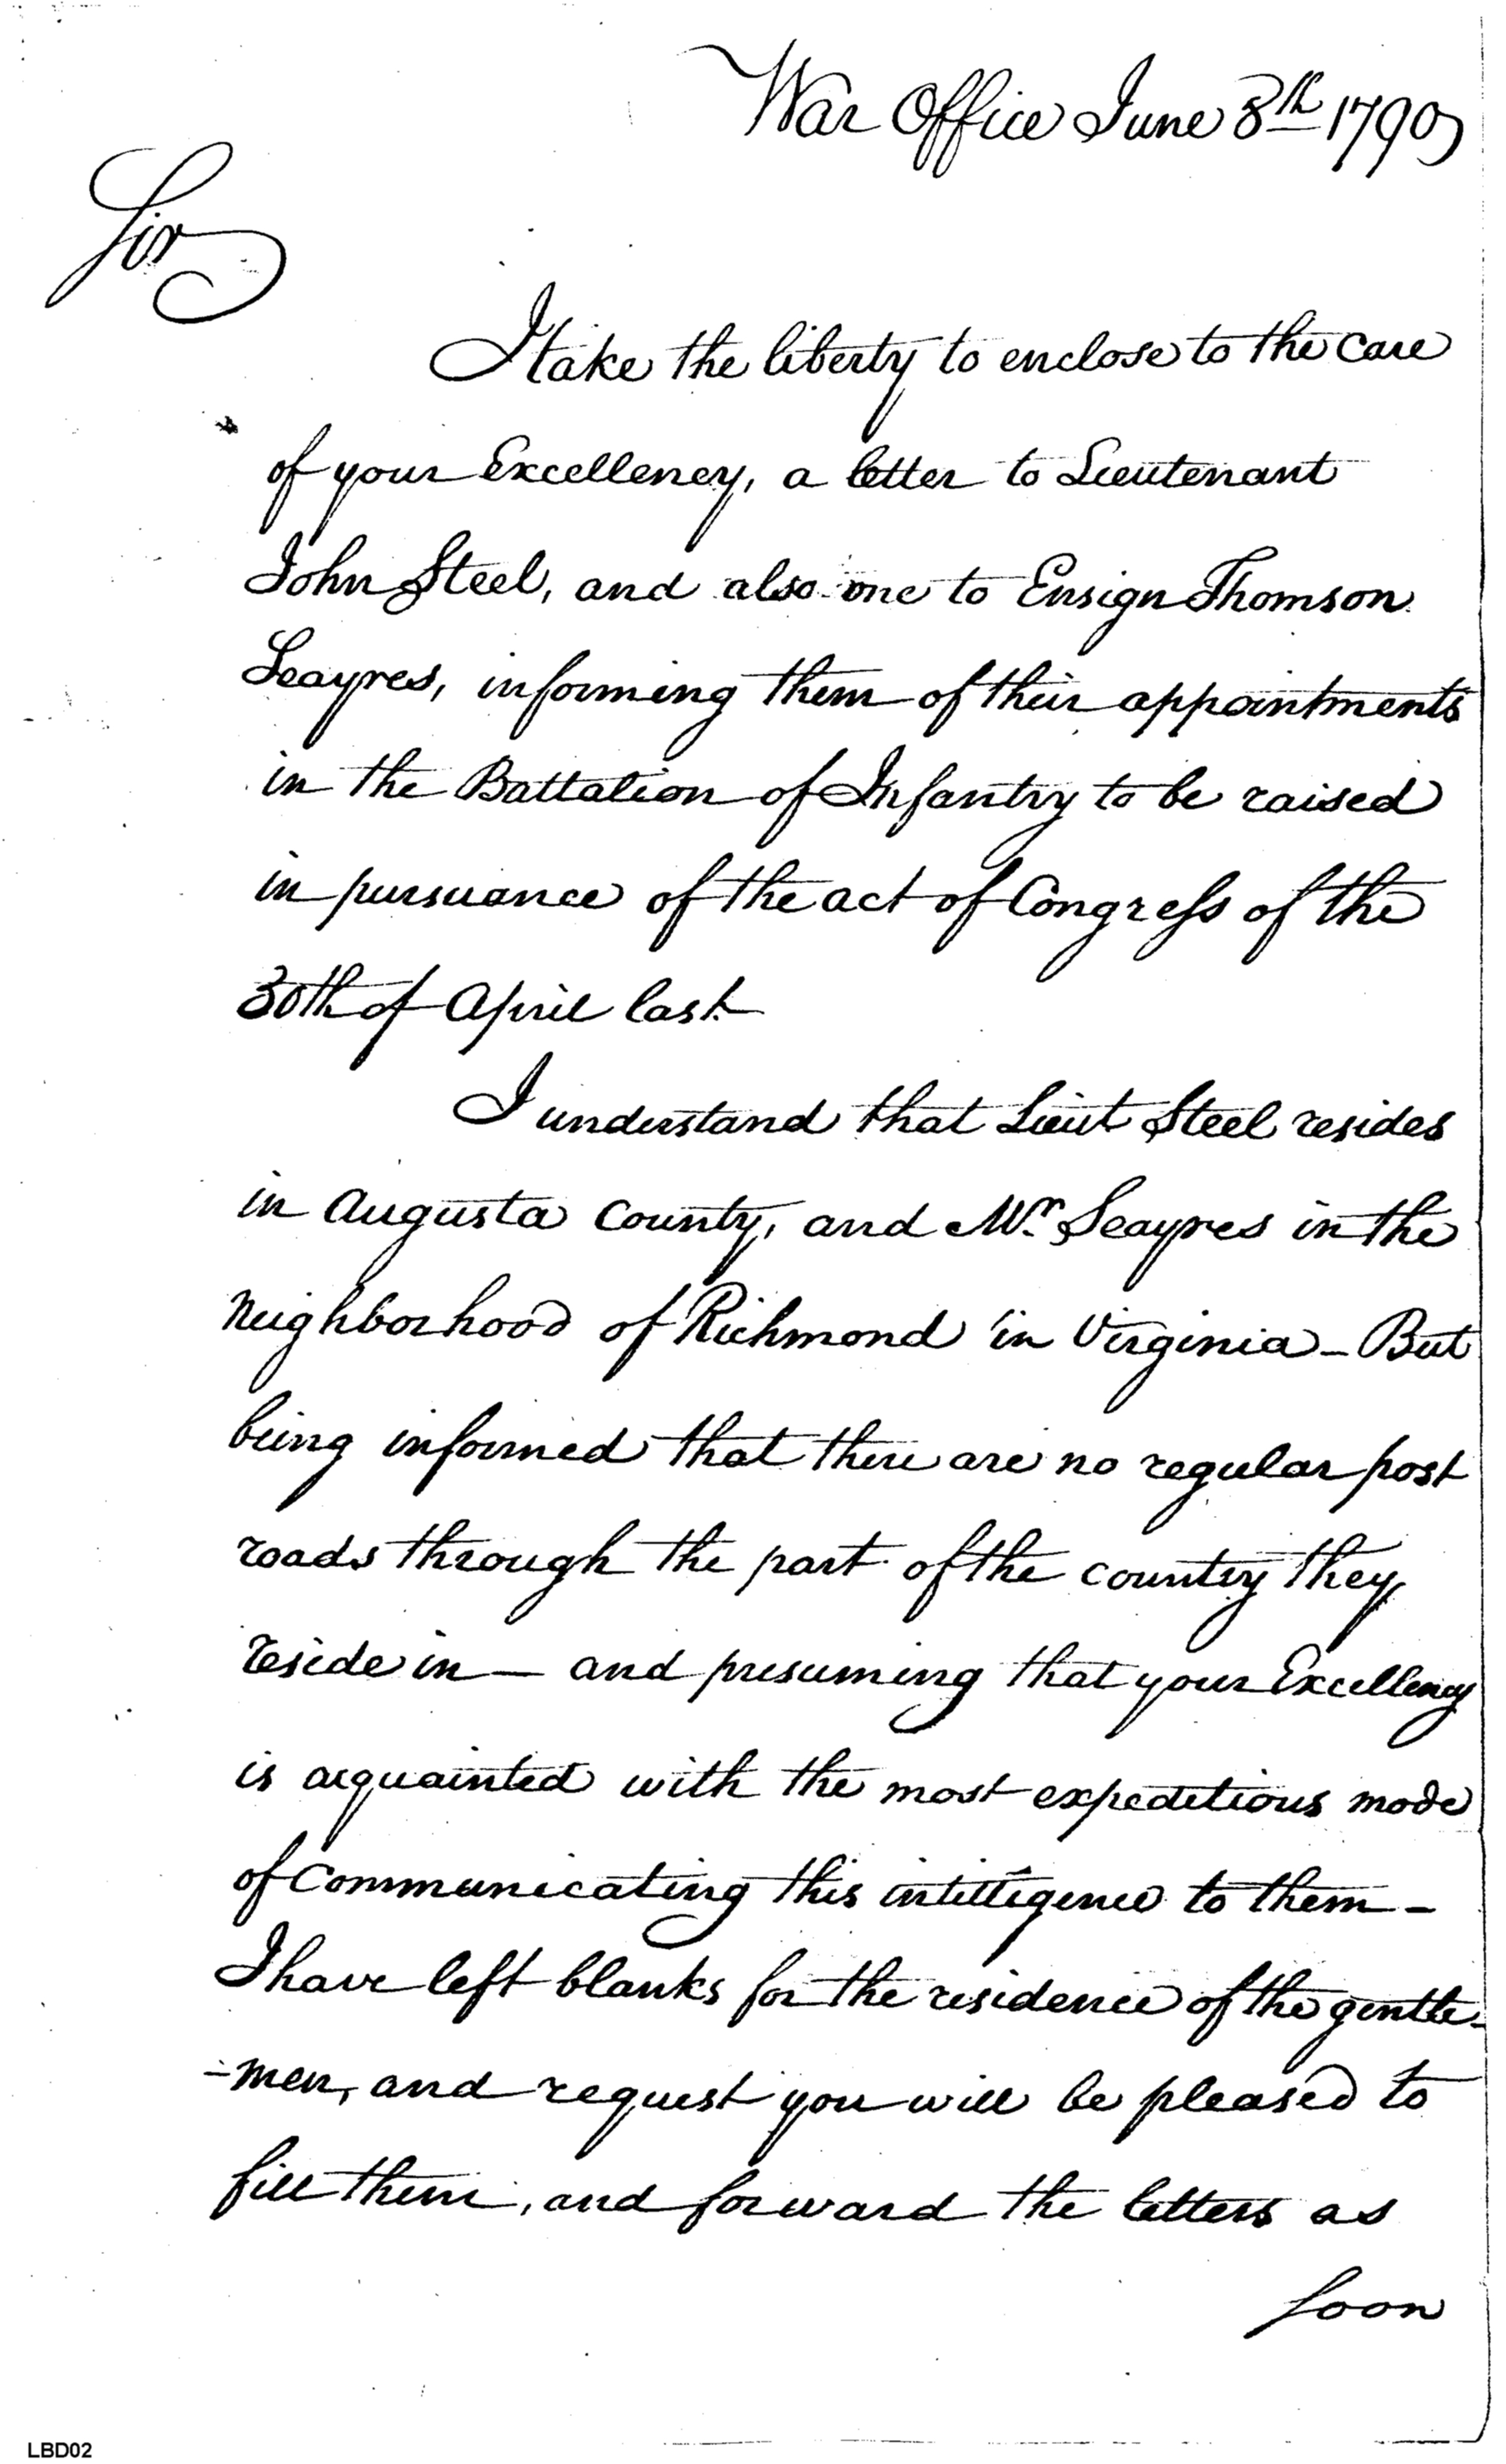 War Office June 8th 1790
Sir
I take the liberty to enclose to the care
of your Excellency, a letter to Lieutenant
John Steel, and also one to Ensign Thomson
Seayres, informing them of their appointments
in the Battalion of Infantry to be raised
in pursuance of the act of Congress of the
30th of April last
I understand that Lieut Steel resides
in Augusta County, and Mr. Seayres in the
Neighborhood of Richmond in Virginia - But
being informed that there are no regular post
roads through the part of the country they
reside in — and presuming that your Excellency
is acquainted with the most expeditious mode
of Communicating this intelligence to them -
I have left blanks for the residence of the gentle-
-men, and request you will be pleased to
fill them, and forward the letters as
soon
LBD02